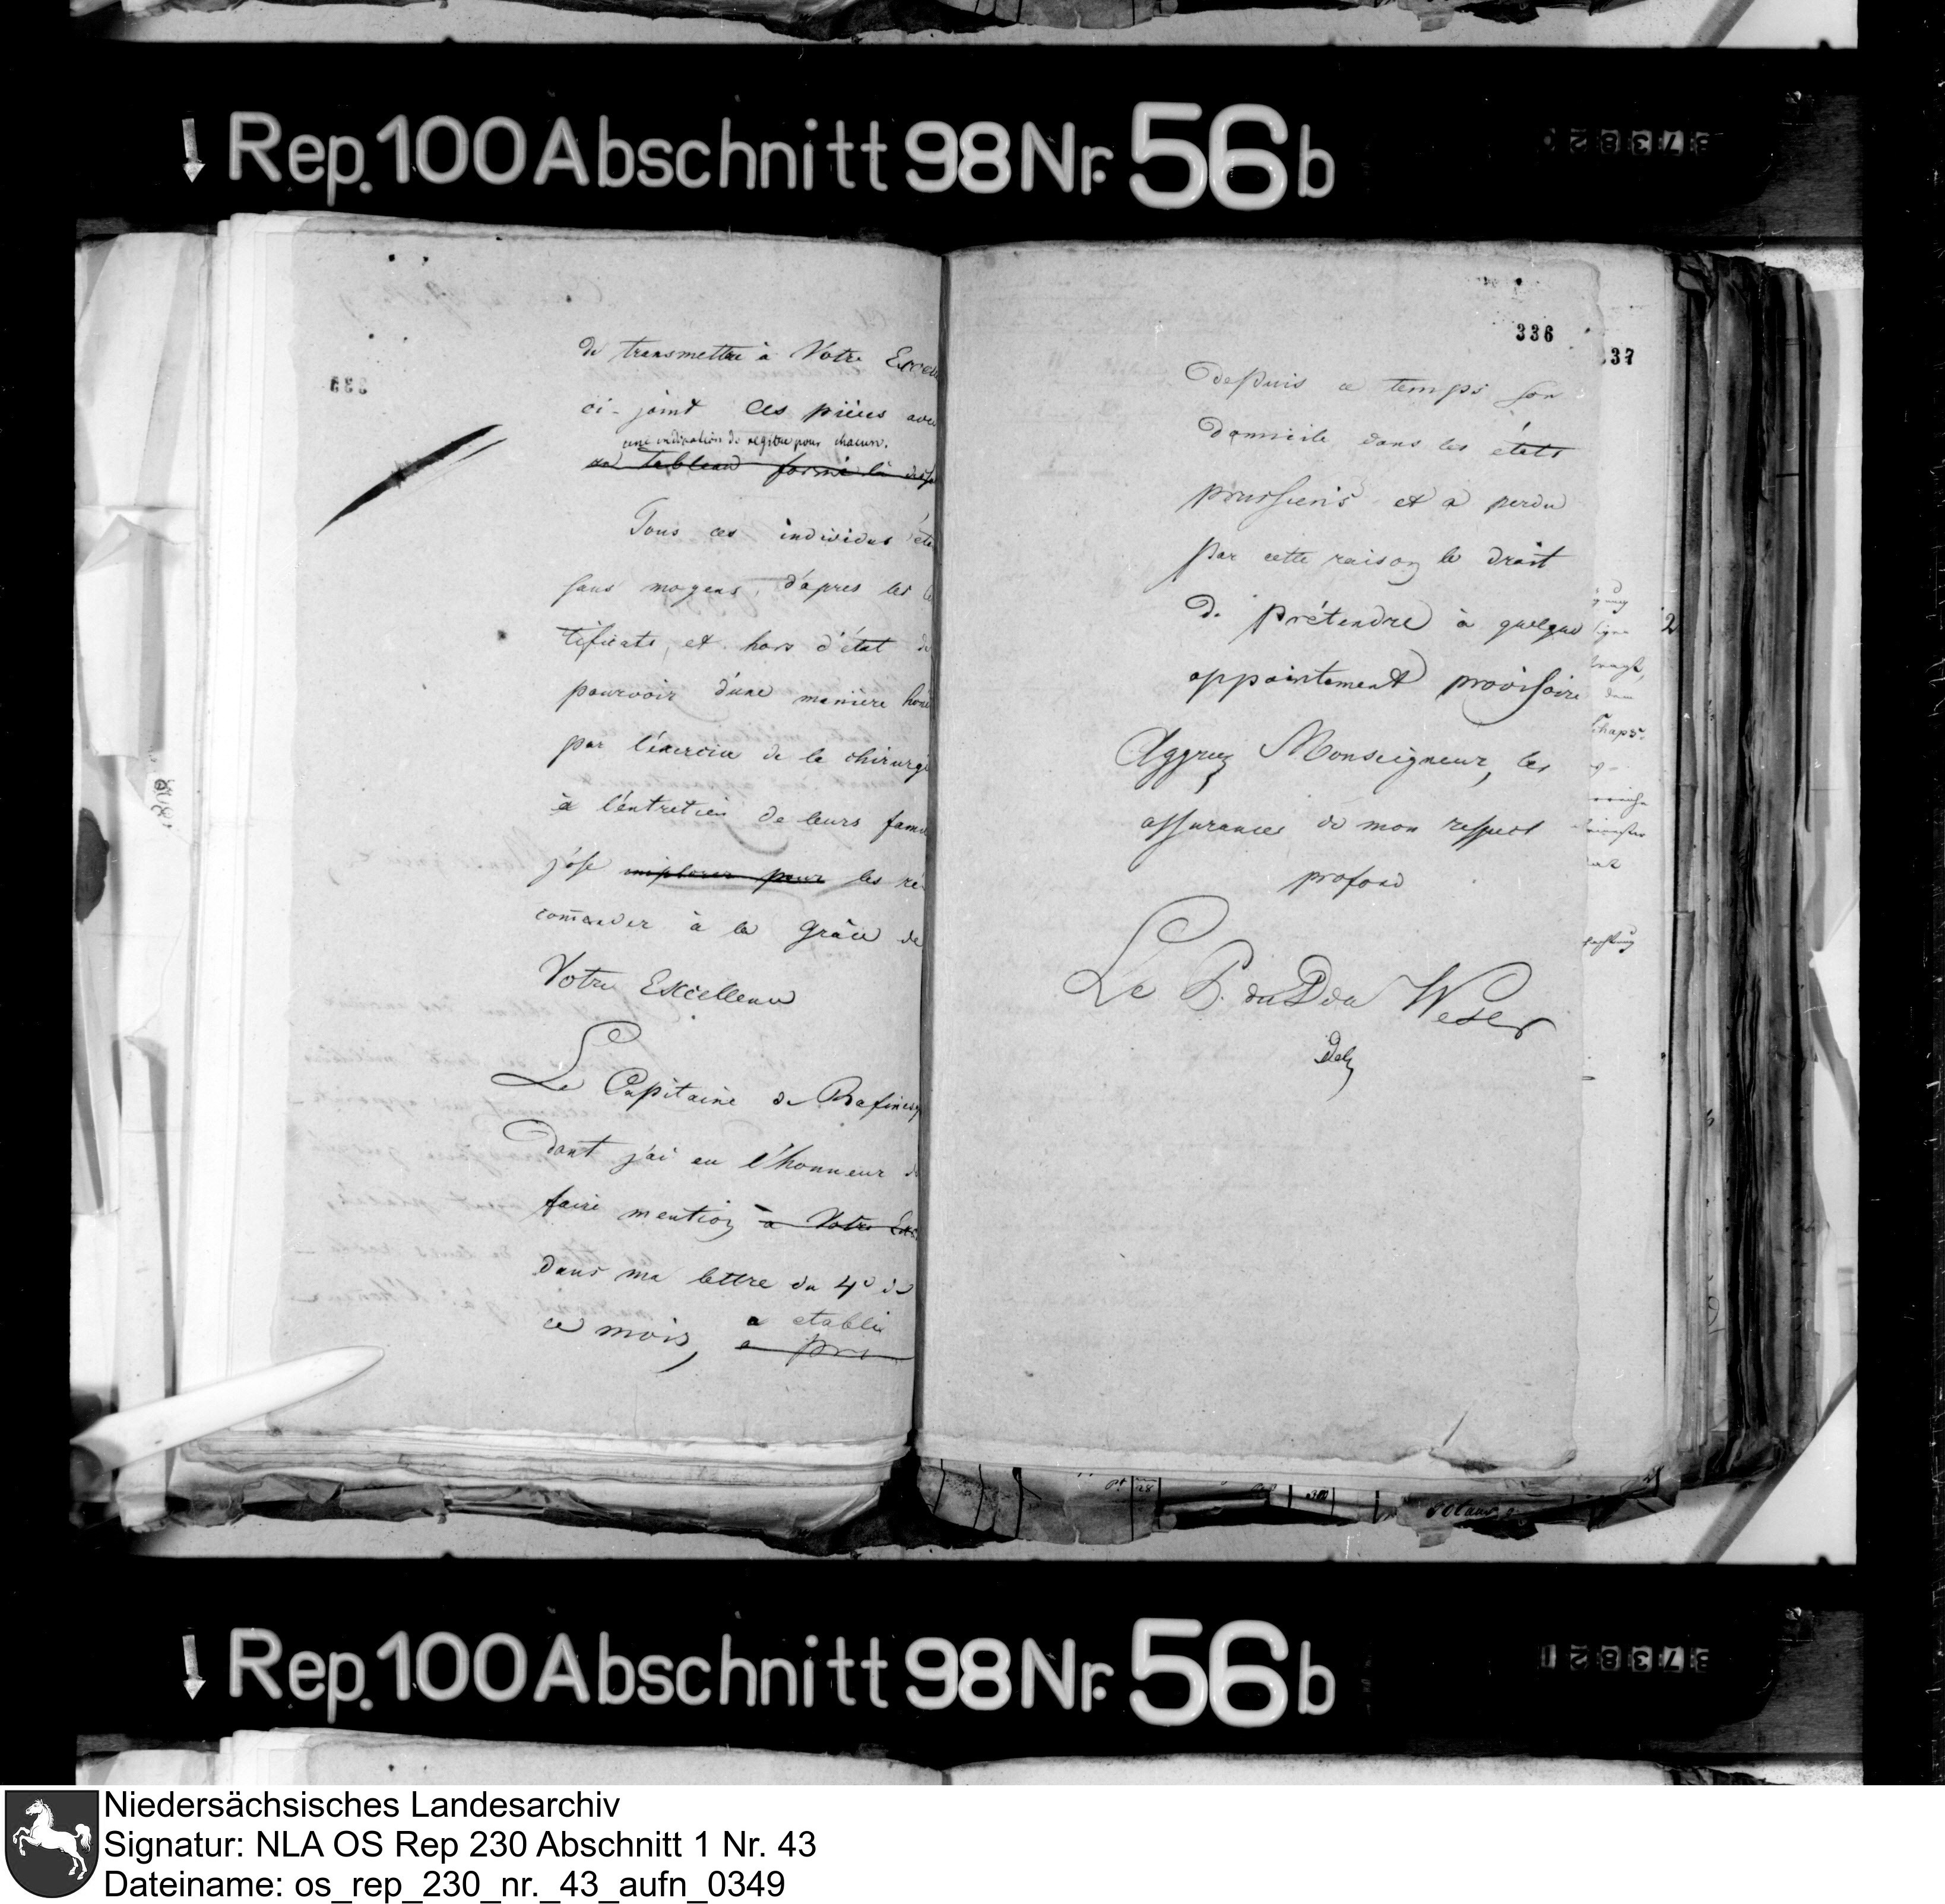 Rep. 100 Abschnitt 98 Nr. 56b
de transmettre à Votre Excell
ci-joint les pièces avec
une indication de registre pour chacun.
un Tableau formé là dess
Tous ces individus éta
sans moyens, d'apres les ce
tificats, et hors d'état de
pourvoir d'une manière hon
par l'éxercice de la chirurgi
à l'entretien de leurs famil
j'ose implorer pour les re
com̄ander à la Grâce de
Votre Excellence
Le Capitaine de Rafinesq
dont j'ai eu l'honneur d
faire mention à Votre Exc
dans ma lettre du 4e de
ce mois, a etabli
a pri
336
337
depuis ce temps son
domicile dans les états
prussiens et a perdu
par cette raison le droit
de prétendre à quelque
appointement provisoire
Aggreez Monseigneur, les
assurances de mon respect
profond
Le P. du D du Weser
Rep. 100 Abschnitt 98 Nr. 56b
Niedersächsisches Landesarchiv
Signatur: NLA OS Rep 230 Abschnitt 1 Nr. 43
Dateiname: os_rep_230_nr._43_aufn_0349